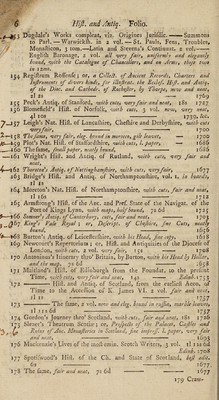 6 Hist. and Antiq. Folio.
153 Dugdale's Works compleat, viz. Origines Juridic. —— Summons
to Parl. — Warwicksh. in 2 vol. — St. Pauls, Fens, Troubles,
Monasticon, 3 tom. — Latin and Stevens's Continuat. 2 vol. —
English Baronage, 2 vol. all very fair, uniformly and elegantly
bound, with the Catalogue of Chancellors, and an Acct. their own
in 12mo.
154 Registrum Roffense; or, a Collect. of Ancient Records, Charters and
Instruments of divers kinds, for illustrat. the Eccles. Hist. and Antiq.
of the Dioc. and Cathedr. of Rochester, by Thorpe, new and neat,
2l 2s 1769
155 Peck's Antiq. of Stanford, with cuts, very fair and neat, 18s 1727
156 Blomefield's Hist. of Norfolk, with cuts, 3 vol. new, very neat,
4l 10s 1739, &c.
157 Leigh's Nat. Hist. of Lancashire, Cheshire and Derbyshire, with cuts
very fair, 1700
158 The same, very fair, eleg. bound in morocco, gilt leaves, 1700
159 Plot's Nat. Hist. of Staffordshire, with cuts, l. paper, 1686
160 The same, small paper, neatly bound, 1686
161 Wright's Hist. and Antiq. of Rutland, with cuts, very fair and
neat, 1684
162 Thoroton's Antiq. of Nottinghamshire, with cuts, very fair, 1677
163 Bridge's Hist. and Antiq. of Northamptonshire, vol. 1. in boards,
1l 1s
164 Moreton's Nat. Hist. of Northamptonshire, with cuts, fair and neat,
1l 16s 1712
165 Armstrong's Hist. of the Anc. and Pres. State of the Navigat. of the
Port of Kings Lynn, with maps, half bd. 7s 6d 1725
166 Somner's Antiq. of Canterbury, cuts, fair and neat, 1703
167 King's Vale Royal; or, Descript. of Cheshire, fine Cuts, neatly
bound, 1656
168 Burton's Antiq. of Leicestershire, with his Head, fair copy,
169 Newcourt's Repertorium; or, Hist. and Antiquities of the Diocess of
London, with cuts, 2 vol. very fair, 1708
170 Antoninus's Itinerary thro' Britain, by Burton, with his Head by Hollar,
and the map, 7s 6d 1658
171 Maitland's Hist. of Edinburgh from the Foundat. to the present
Time, with cuts, very fair and neat, 14s Edinb. 1753
172 —— Hist. and Antiq. of Scotland, from the earliest Accou. of
Time to the Accession of K. James VI. 2 vol. fair and neat,
1l 1s 1757
173 —— The same, 2 vol. new and eleg. bound in russia, marble leaves,
1l 11s 6d 1757
174 Gordon's Journey thro' Scotland, with cuts, fair and neat, 18s 1726
175 Slezer's Theatrum Scotiæ; or, Prospects of the Palaces, Castles and
Ruins of Anc. Monasteries in Scotland, fine impress. l. paper, very fair
and neat, 1693
176 Mackenzie's Lives of the most emin. Scotch Writers, 3 vol. 1l 11s 6d
Edinb. 1708
177 Spotiswood's Hist. of the Ch. and State of Scotland, best edit.
6s 1677
178 The same, fair and neat, 7s 6d 1677
179 Craw-